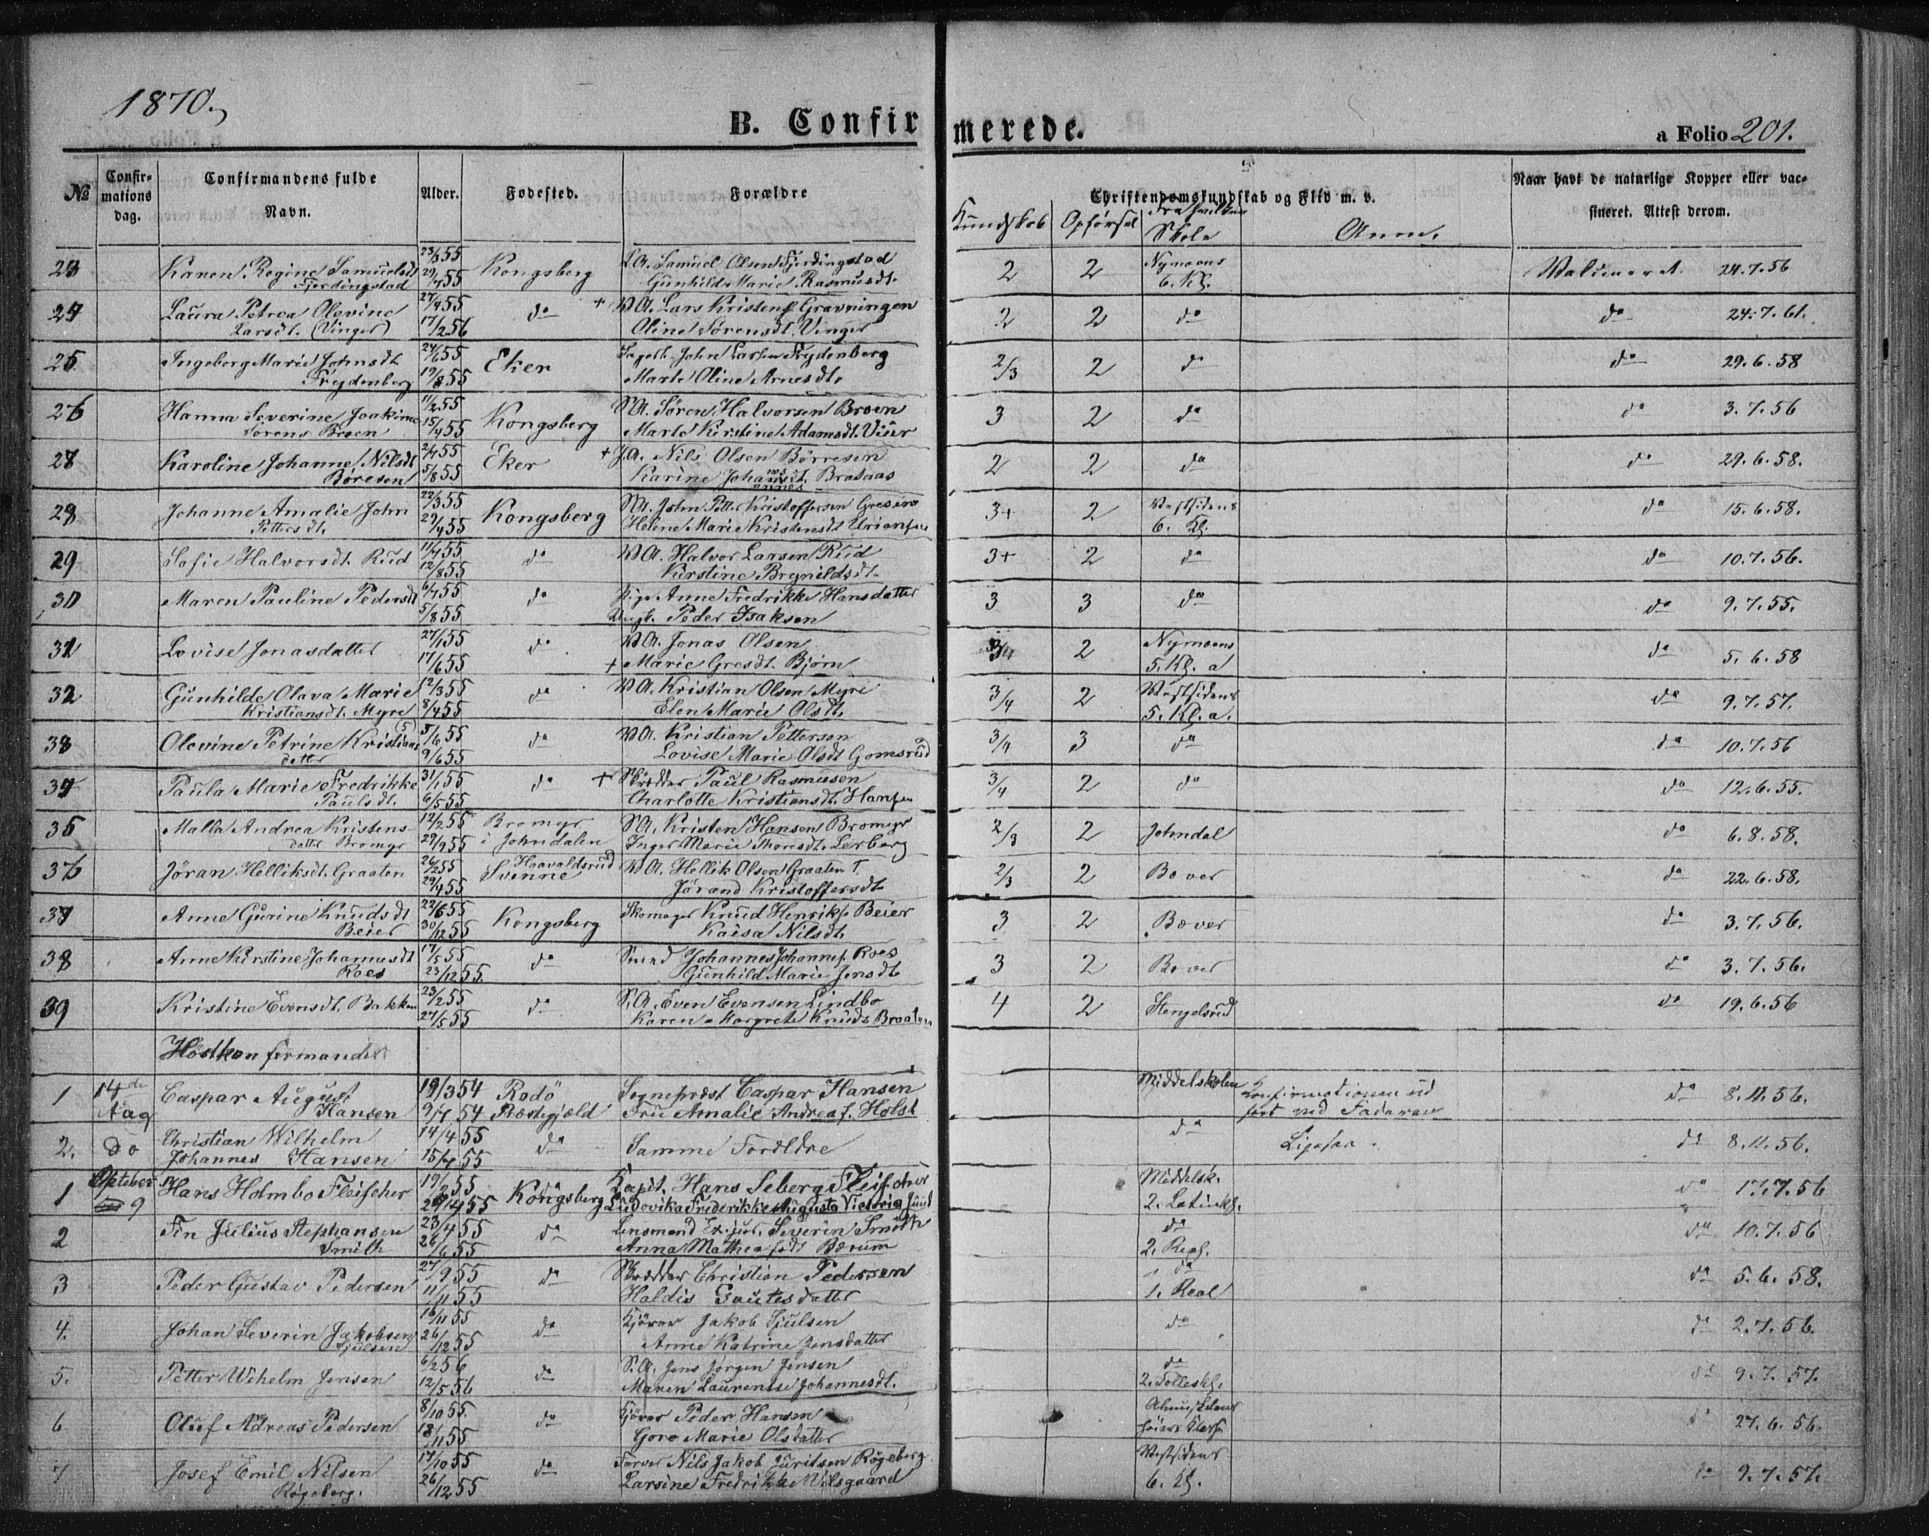 1870.
B. Confirmerede.
a Folio 201.
№ Confirmations dag. Confirmandens fulde Navn. Alder. Fødested. Forældre Christendomskundskab og Flid m. v. Naar havt de naturlige Kopper eller vaccineret. Attest derom.
Kundskab Opførsel Fra hvilken Skole Anm.
23 Karen Regine Samuelsdt 23/3 55 Kongsberg Samuel Olsen Fjerdingstad 2 2 Nymoens Valdemar A. 24.7.56
Fjerdingstad 29/4 55 Gunhild Marie Rasmusdt. 6. Kl.
24 Laura Petrea Olevine 27/9 55 do + Lars Kristens Gravningen 2 2 do do 24.7.61.
Larsdt. (Vinger) 17/2 56 Oline Sørensdt. Vinger
25 Ingeborg Marie Johnsdt 24/6 55 Eker John Larsen Frydenberg 2/3 2 do do 29.6.58
Frydenberg 19/8 55 Marte Oline Arnesdt.
26 Hanna Severine Joakime 11/2 55 Kongsberg S.A. Søren Halvorsen Broen 3 2 do do 3.7.56
Sørens Broen 15/4 55 Marte Kirstine Adamsdt. Vier
27 Karoline Johanne Nilsdt 2/4 55 Eker + Nils Olsen Børresen 2 2 do do 29.6.58.
Børesen 5/8 55 Karine Braataas
28 Johanne Amalie John 22/3 55 Kongsberg John Petter Kristoffersen 3+ 2 Vestsidens do 15.6.58.
Pettersdt. 29/4 55 Helene Marie Kristensdt 6. Kl.
29 Sofie Halvorsdt. Rud 11/4 55 do Halvor Larsen Rud 3+ 2 do do 10.7.56.
12/8 55 Kirstine Brynildsdt.
30 Maren Pauline Pedersdt 6/4 55 do Pige Anne Fredrikke Hansdatter 3 3 do do 9.7.55.
5/8 55 Ungk. Peder Isaksen
31 Lovise Jonasdatter 27/1 55 do Jonas Olsen 3/4 2 Nymoens do 5.6.58
17/6 55 + Marie Gresdt. Bjørn 5. Kl. a
32 Gunhilde Olava Marie 12/3 55 do Kristian Olsen Myre 3/4 2 Vestsidens do 9.7.57.
Kristiansdt. Myre 8/4 55 Elen Marie Olsdt. 5. Kl. a.
33 Olevine Petrine Kristians 5/6 55 do Kristian Petterson 3/4 3 do do 10.7.56
datter 9/6 55 Lovise Marie Olsdt Gomsrud
34 Paula Marie Fredrikke 31/1 55 do + Skrædder Paul Rasmusen 3/4 2 do do 12.6.55.
Paulsdt. 6/5 55 Charlotte Kristiansdt. Hansen
35 Malla Andrea Kristens- 12/2 55 Bromyr S.A. Kristen Hansen Bromyr 2/3 2 Johndal do 6.8.58.
datter Bromyr 29/9 55 i Johndalen Inger Marie Thorsdt. Lerberg
36 Jøran Helliksdt. Graaten 26/2 55 Haavaldsrud Hellik Olsen Graaten 2/3 2 Bover do 22.6.58.
29/4 55 Svenne Jørand Kristoffersdt
37 Anne Gurine Knudsdt 22/6 55 Kongsberg Skomager Knud Henriks. Beier 3 2 Bæver do 3.7.56
Beier 30/12 55 Kaisa Nilsdt.
38 Anne Kirstine Johannesdt 17/5 55 do Smed Johannes Johannes. Roes 3 2 Bever do 3.7.56.
Roes 23/12 55. Gunhild Marie Jensdt
39 Kristine Evensdt. Bakken 23/2 55 do S.A. Even Evensen Lindbo 4 2 Hengelsrud do 19.6.56
27/5 55 Karen Margrete Knuds Braaten
Høstkonfirmander
1 14de Caspar August 19/3 54 Rodö Sogneprest Caspar Hansen Middelskolen Konfirmationen ud do 8.11.56.
Aug Hansen 9/4 54 Præstegjæld Fru Amalie Andrea f. Holst ført ved Faderen
2. do Christian Wilhelm 14/4 55 do Samme Forældre do Ligesaa. do 8.11.56.
Johannes Hansen 15/4 55
1 Oktober Hans Holmbo Fleischer 19/2 55 Kongsberg Kapt. Hans Seberg Fleischer Middelsk. do 17.7.56
9 29/4 55 Ludovika Frederikke Augusta Victoria 2. Latinkl.
2 Fin Julius Stephansen 23/4 55 do Lensmand Severin Smith do do 10.7.56
Smith 26/6 55 Anna Mathea født Bærum 2. Real.
3 Peder Gustav Pedersen 27/9 55 do Skrædder Christian Pedersen do do 5.6.58.
11/11 55 Haldis Gautesdatter 1. Real
4. Johan Severin Jakobsen 16/11 55 do Kjører Jakob Gjulsen do do 2.7.56.
Gjulsen 26/12 55 Anne Katrine Jensdatter
5. Petter Wihelm Jensen 6/2 56 do S.A. Jens Jørgen Jensen do do 9.7.57.
12/5 56 Maren Laurentse Johannesdt. 2. Fælleskl.
6 Oluf Adreas Pedersen 8/10 55. do Kjører Peder Hansen Almueskolens do 27.6.56.
18/11 55 Goro Marie Olsdatter høiere Klasse
7 Josef Emil Nilsen 17/10 55 do Farver Nils Jakob Juritsen Røgeberg Vestsidens do 9.7.57.
Røgeberg. 26/12 55 Larsine Fredrikke Nilsgaard 6. Kl.